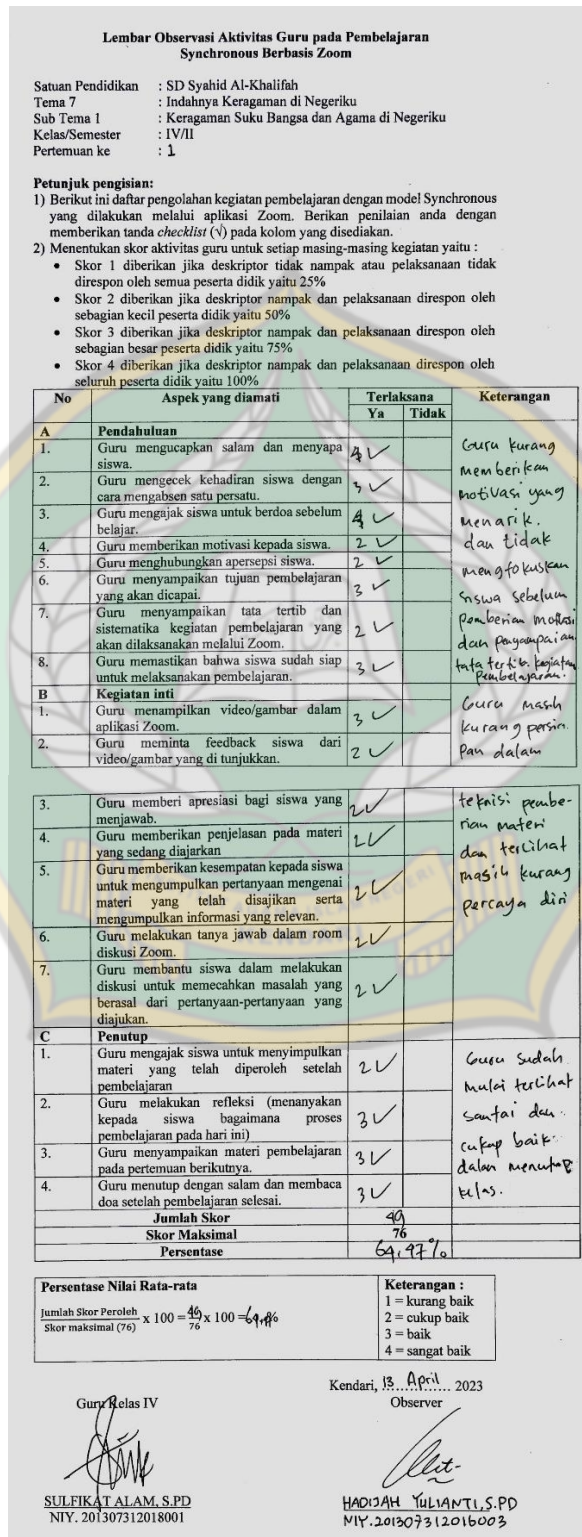 Lembar Observasi Aktivitas Guru pada Pembelajaran
Synchronous Berbasis Zoom
Satuan Pendidikan : SD Syahid Al-Khalifah
Tema 7 : Indahnya Keragaman di Negeriku
Sub Tema 1 : Keragaman Suku Bangsa dan Agama di Negeriku
Kelas/Semester : IV/II
Pertemuan ke : 1
Petunjuk pengisian:
1) Berikut ini daftar pengolahan kegiatan pembelajaran dengan model Synchronous
yang dilakukan melalui aplikasi Zoom. Berikan penilaian anda dengan
memberikan tanda checklist (√) pada kolom yang disediakan.
2) Menentukan skor aktivitas guru untuk setiap masing-masing kegiatan yaitu :
• Skor 1 diberikan jika deskriptor tidak nampak atau pelaksanaan tidak
direspon oleh semua peserta didik yaitu 25%
• Skor 2 diberikan jika deskriptor nampak dan pelaksanaan direspon oleh
sebagian kecil peserta didik yaitu 50%
• Skor 3 diberikan jika deskriptor nampak dan pelaksanaan direspon oleh
sebagian besar peserta didik yaitu 75%
• Skor 4 diberikan jika deskriptor nampak dan pelaksanaan direspon oleh
seluruh peserta didik yaitu 100%
No Aspek yang diamati Terlaksana Keterangan
Ya Tidak
A Pendahuluan
1. Guru mengucapkan salam dan menyapa 4 ✓
siswa.
2. Guru mengecek kehadiran siswa dengan 3 ✓
cara mengabsen satu persatu.
3. Guru mengajak siswa untuk berdoa sebelum 4 ✓
belajar.
4. Guru memberikan motivasi kepada siswa. 2 ✓
5. Guru menghubungkan apersepsi siswa. 2 ✓
6. Guru menyampaikan tujuan pembelajaran 3 ✓
yang akan dicapai.
7. Guru menyampaikan tata tertib dan
sistematika kegiatan pembelajaran yang 2 ✓
akan dilaksanakan melalui Zoom.
8. Guru memastikan bahwa siswa sudah siap 3 ✓
untuk melaksanakan pembelajaran.
Guru kurang
memberikan
motivasi yang
menarik.
dan tidak
mengfokuskan
siswa sebelum
pemberian motivasi
dan penyampaian
tata tertib kegiatan
Pembelajaran.
B Kegiatan inti
1. Guru menampilkan video/gambar dalam 3 ✓
aplikasi Zoom.
2. Guru meminta feedback siswa dari 2 ✓
video/gambar yang di tunjukkan.
Guru masih
kurang persia
pan dalam
3. Guru memberi apresiasi bagi siswa yang 2 ✓
menjawab.
4. Guru memberikan penjelasan pada materi 2 ✓
yang sedang diajarkan
5. Guru memberikan kesempatan kepada siswa
untuk mengumpulkan pertanyaan mengenai 2 ✓
materi yang telah disajikan serta
mengumpulkan informasi yang relevan.
6. Guru melakukan tanya jawab dalam room 2 ✓
diskusi Zoom.
7. Guru membantu siswa dalam melakukan
diskusi untuk memecahkan masalah yang 2 ✓
berasal dari pertanyaan-pertanyaan yang
diajukan.
teknisi pembe-
rian materi
dan terlihat
masih kurang
percaya diri
C Penutup
1. Guru mengajak siswa untuk menyimpulkan
materi yang telah diperoleh setelah 2 ✓
pembelajaran
2. Guru melakukan refleksi (menanyakan
kepada siswa bagaimana proses 3 ✓
pembelajaran pada hari ini)
3. Guru menyampaikan materi pembelajaran 3 ✓
pada pertemuan berikutnya.
4. Guru menutup dengan salam dan membaca 3 ✓
doa setelah pembelajaran selesai.
Guru sudah
mulai terlihat
santai dan
cukup baik
dalam menutup
kelas.
Jumlah Skor 49
Skor Maksimal 76
Persentase 64,47%
Persentase Nilai Rata-rata
Jumlah Skor Peroleh
Skor maksimal (76) x 100 = 49/76 x 100 =
Keterangan :
1 = kurang baik
2 = cukup baik
3 = baik
4 = sangat baik
Kendari, 13 April 2023
Guru Kelas IV Observer
SULFIKAT ALAM, S.PD HADIJAH YULIANTI, S.PD
NIY. 201307312018001 NIY. 201307312016003